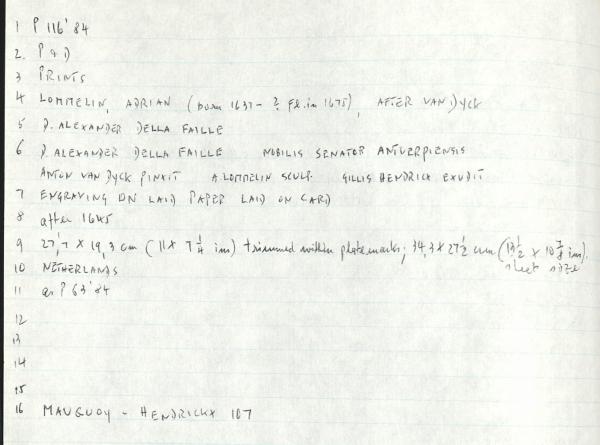 1 P 116'84
2. P & D
3 PRINTS
4 LOMMELIN, ADRIAN (born 1637 - ? fl. in 1675), AFTER VAN DYCK
5 D. ALEXANDER DELLA FAILLE
6 D. ALEXANDER DELLA FAILLE NOBILIS SENATOR ANTVERPIENSIS
ANTON VAN DYCK PINXIT A. LOMMELIN SCULP. GILLIS HENDRICX EXUDIT
7 ENGRAVING ON LAID PAPER LAID ON CARD
8 after 1645
9 27,7 X 19,3 cm (11 X 7 1/4 im) trimmed within platemarks; 34,3 X 27 1/2 cm (13 1/2 X 10 7/8 im).
sheet size
10 NETHERLANDS
11 as P 63'84
12
13
14
15
16 MAUQUOY - HENDRICKX 107